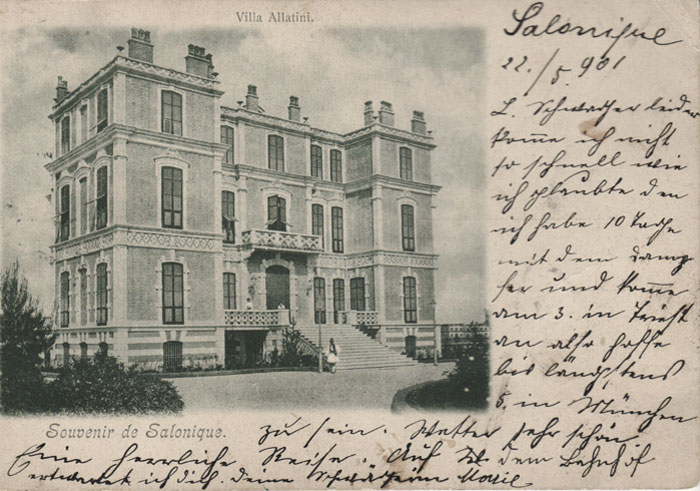 Villa Allatini.
Salonique
22./5. 901
L. Schwager leider
komme ich nicht
so schnell wie
ich glaubte den
ich habe 10 Tage
mit dem Damp
fer und komme
am 3. in Triest
an also hoffe
bis längstens
5. in München
Souvenir de Salonique.
zu sein. Wetter sehr schön
Eine herrliche Reise. Auf W dem Bahnhof
erwartet ich dich. deine Schwägerin Marie